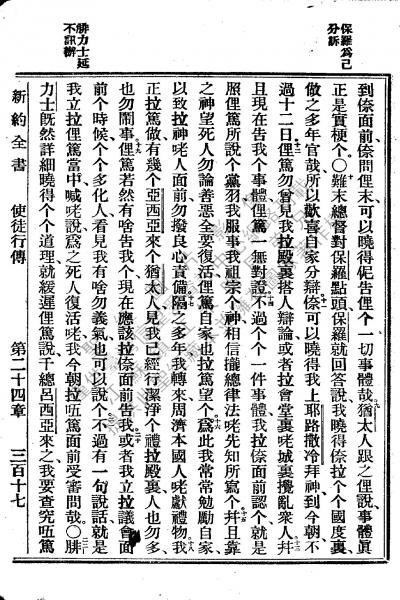 保羅爲己
分訴
腓力士延
不訊辦
到倷面前、倷問俚末可以曉得伲告俚个一切事體哉、猶太人跟之俚說、事體眞
正是實梗个○難末總督對保羅點頭、保羅就回答說、我曉得倷拉个个國度裏
做之多年官哉、所以歡喜自家分辯、倷可以曉得我上耶路撒冷拜神、到今朝不
過十二日、俚篤勿曾見我拉殿裏搭人辯論、或者拉會堂裏咾城裏攪亂衆人、幷
且現在告我个事體、俚篤一無對證、不過个个一件事體、我拉倷面前認个、就是
照俚篤所說个黨羽、我服事我祖宗个神、相信攏總律法咾先知所寫个、幷且靠
之神望死人勿論善惡全要復活、俚篤自家也拉篤望个、爲此我常常勉勵自家、
以致拉神咾人面前勿撥良心責備、隔之多年我轉來、周濟本國人咾獻禮物、我
正拉篤做、有幾个亞西亞來个猶太人見我已經行潔淨个禮拉殿裏、人也勿多、
也勿鬧事、俚篤若然有啥告我个、現在應該拉倷面前告我、或者我立拉議會面
前个時候、个个多化人看見我有啥勿義氣、也可以說个、不過有一句說話、就是
我立拉俚篤當中喊咾說、爲之死人復活咾、我今朝拉㕶篤面前受審問哉、○腓
力士旣然詳細曉得个个道理、就緩遲俚篤說、千總呂西亞來之、我要查究㕶篤
新約全書　使徒行傳　第二十四章　三百十七